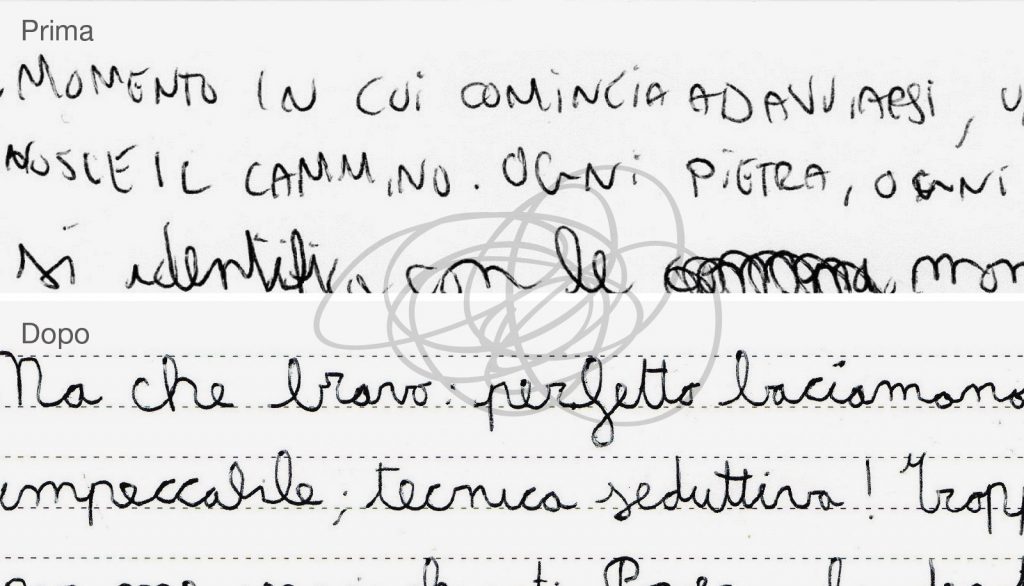 Prima
MOMENTO IN CUI COMINCIA AD AVVIARSI,
IL CAMMINO. OGNI PIETRA, OGNI
si con le
Dopo
Ma che bravo: perfetto baciamano
impeccabile; tecnica seduttiva!